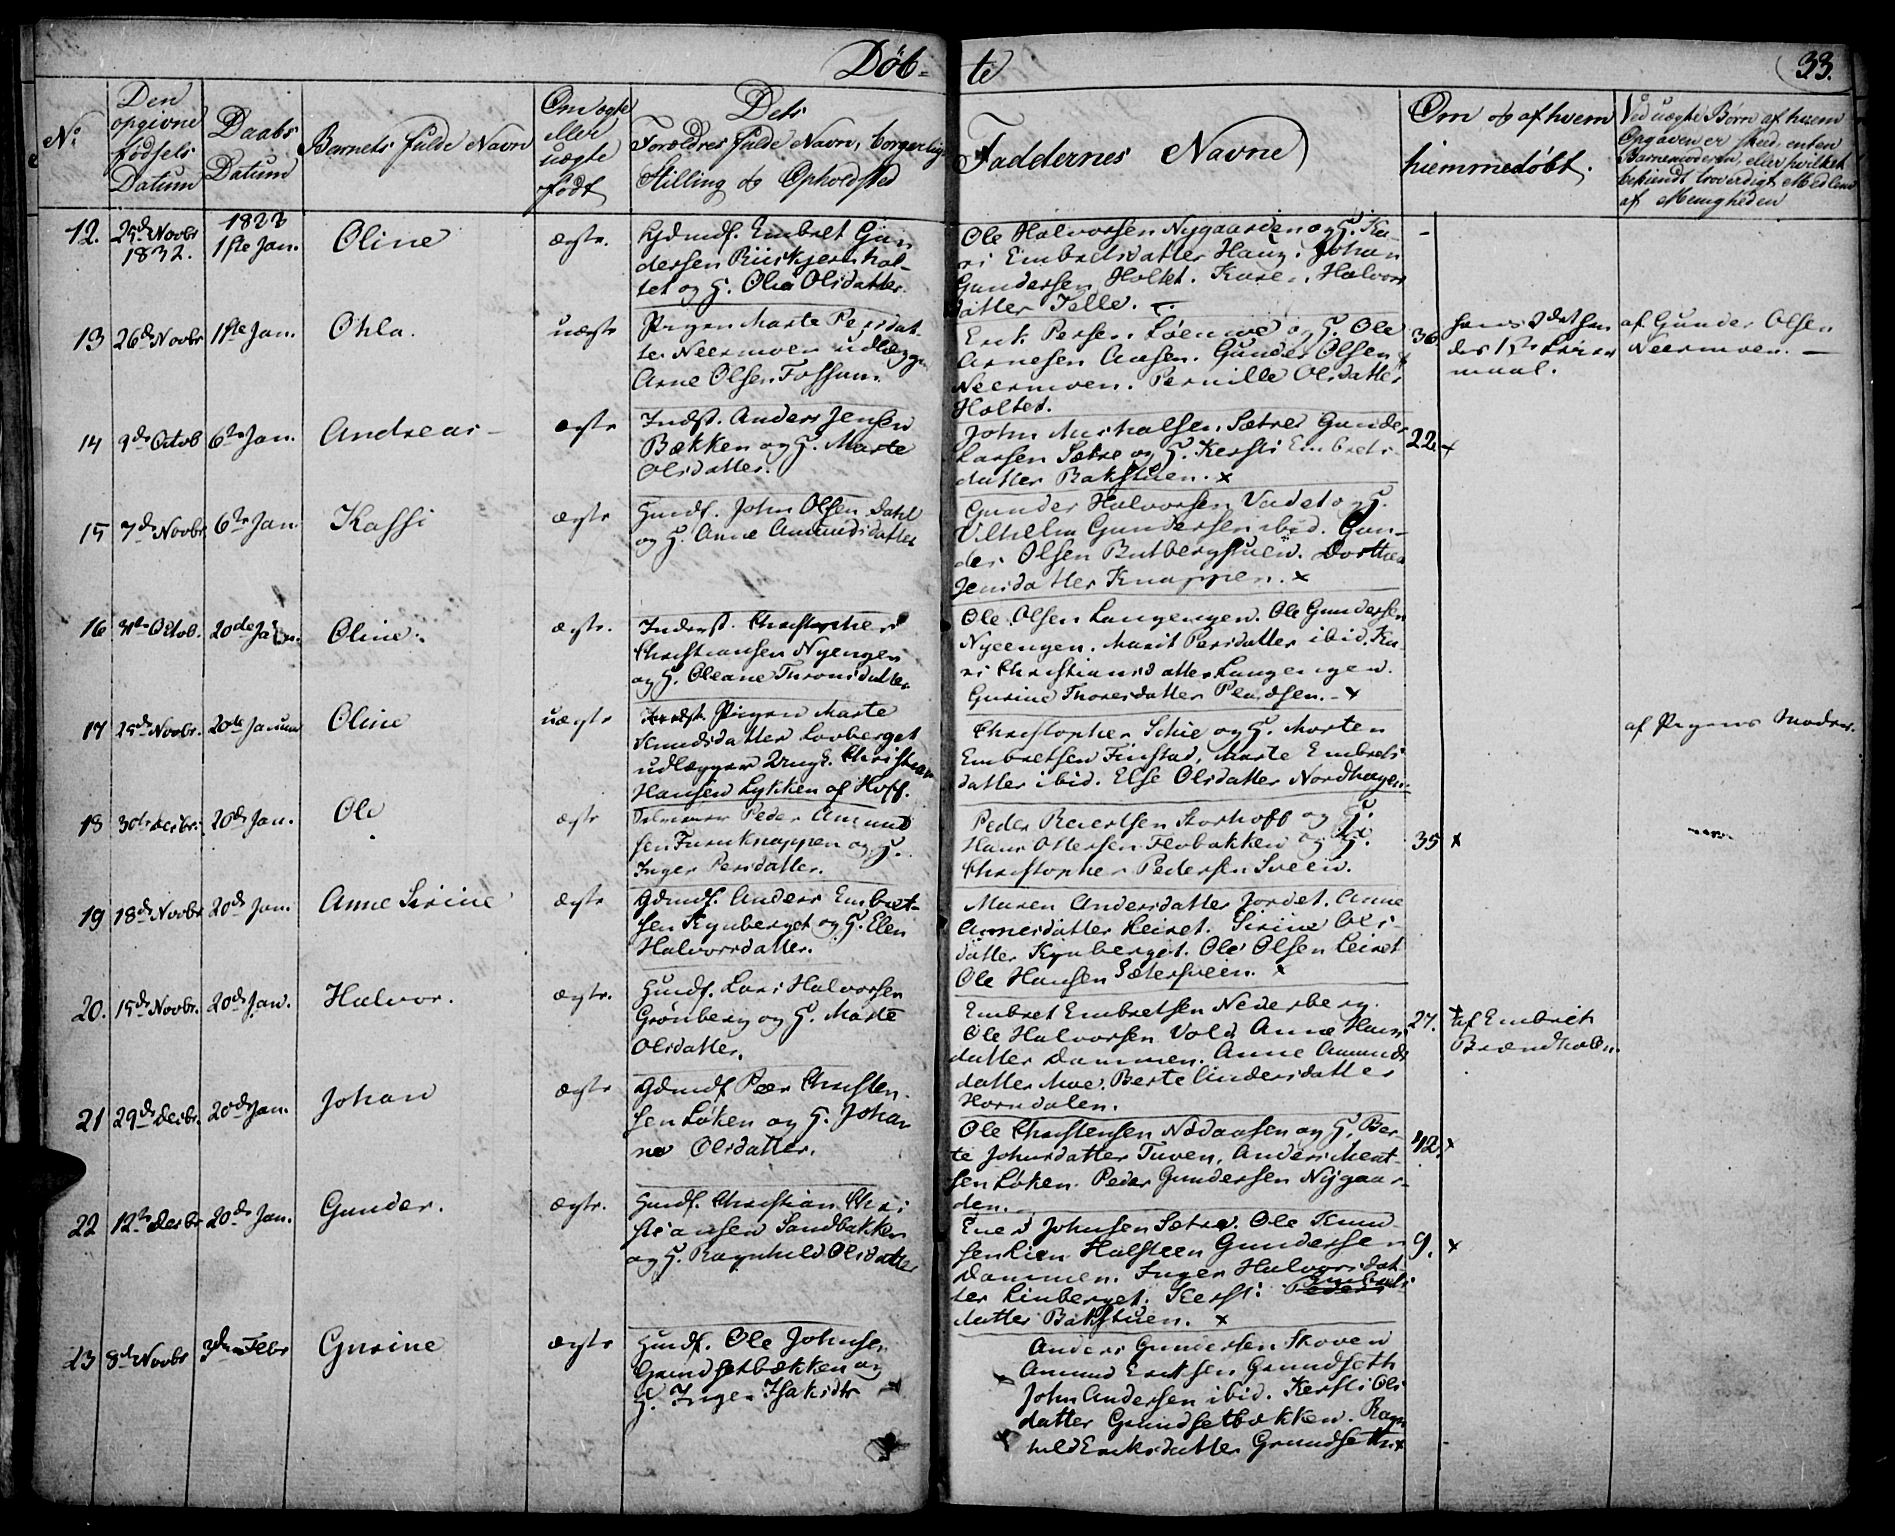 Døb-
te
33.
No
Den
opgivne
fødsels
Datum
Daabs
Datum
Barnets fulde Navn
Om ægte
eller
uægte
født
Dets
Forældres fulde Navn, borgerlig
Stilling og Opholdsted
Faddernes Navne
Om og af hvem
hiemmedøbt.
Ved uægte Børn af hvem
Opgaven er skeed, enten
Barnemoderen, eller hvilket
bekiendt troverdigt Medlem
af Menigheden
12.
25de Novbr
1832.
1833
1ste Jan.
Oline
ægte.
Gdmdf. Embret Gun
dersen
tet og H. Olea Olsdatter.
Ole Halvorsen Nygaarden og H. Ka-
ri Embretsdatter Haug. Johan
Gundersen Holtet. Karen Halvors
datter Telle.
13
26de Novbr
1ste Jan.
Ohla.
uægte
Pigen Marte Persdat
ter Neermoen udlægger
Arne Olsen Fossum.
Erik Persen og H. Ole
Arnesen Aasen. Gunder Olsen
Neermoen. Pernille Olsdatter
Holtet.
36
af Gunder Olsen
Neermoen.
maal.
14
9de Octob
6te Jan.
Andreas
ægte
Indst. Anders Jensen
Bækken og H. Marte
Olsdatter.
John Sætre Gunder
Larsen Sætre og H. Kersti Embrets
datter Bakstuen. x
22. x
15
7de Novbr
6te Jan
Kassi
ægte
Husmdf. John Olsen Dahl
og H. Anne Amundsdatter
Gunder Halvorsen Vadet og H.
Vilhelm Gundersen ibid. Gun-
der Olsen Butbergstuen. Dorthea
Jensdatter Knappen. x
16
31te Octob.
20de Jan.
Oline.
ægte.
Inderst. Christopher
Christiansen Nyengen
og H. Oleane Tronsdatter
Ole Olsen Langengen. Ole Gundersen
Nyeengen. Marit Persdatter ibid. Ka-
ri Christiansdatter Langengen.
Gurine Thoresdatter x
17
25de Novbr.
20de Januar
Oline
uægte
Pigen Marte
Knudsdatter Lovberget
udlægger Ungk. Christian
Hansen Lykken af Hoff.
Christopher Schie og H. Morten
Embretsen Finstad. Marte Embrets
datter ibid. Else Olsdatter Nordhagen
af Pigens Moder.
18
30te Decbr.
20de Jan.
Ole
ægte
Peder Amund
sen Furuknappen og H.
Inger Persdatter.
Peder Reiersen Storhoff og H.
Hans Ottersen Flobakken og H.
Christopher Pedersen Sveen.
35 x
19
18de Novbr
20de Jan.
Anne Sirine
ægte
Gdmdf. Anders Embret-
sen Kynberget og H. Elen
Halvorsdatter.
Maren Andersdatter Jordet. Anne
Arnesdatter Leiret. Sirine Ols
datter Kynberget. Ole Olsen Leiret
Ole Hansen Sætersveen. x
20.
15de Novbr.
20de Jan.
Halvor.
ægte.
Husmdf. Lars Halvorsen
Grønberg og H. Marte
Olsdatter.
Embret Embretsen Nederberg.
Ole Halvorsen Vold. Anne Hans
datter Dammen. Anne Amunds
datter Moe. Berte Andersdatter
Horndalen.
27.
af Embret
21
29de Decbr.
20de Jan.
Johan
ægte
Gdmdf Peer Christen
sen Løken og H. Johan
ne Olsdatter.
Ole Christensen Nodaasen og H. Ber-
te Johnsdatter Tuven. Anders
sen Løken. Peder Gundersen Nygaar-
den.
12. x
22
12te Decbr
20de Jan.
Gunder.
ægte.
Husmdf. Christian Chri
stiansen Sandbakken
og H. Ragnhild Olsdatter
Ener Johnsen Sætre. Ole Knud
sen Lien Halsteen Gundersen
Dammen. Inger Halvorsdat-
ter Linberget. Kersti Embrets
datter Bakstuen. x
9. x
23
8de Novbr
3de Febr
Gurine
ægte
Husmdf. Ole Johnsen
Grundsetbækken og
H. Inger Isaksdtr
Anders Gundersen Skoven
Amund Eriksen Grundseth
John Andersen ibid. Kersti Ols
datter Grundsetbækken. Ragn
hild Eriksdatter Grundseth x